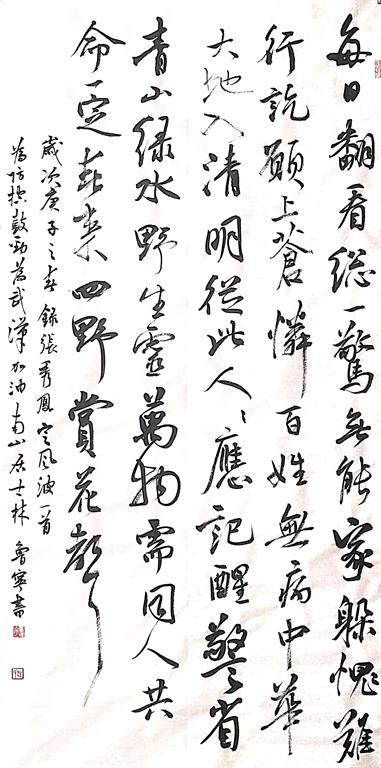 每日翻看總一驚无能家躲愧難
行願上蒼憐百姓無病中華
大地入清明從此人々應記醒警省
青山綠水野生靈萬物需同人共
命一定春來四野賞花
歲次庚子之春錄張秀鳳定風波一首
為防控鼓勁為武漢加油南山居士林
魯寧齋